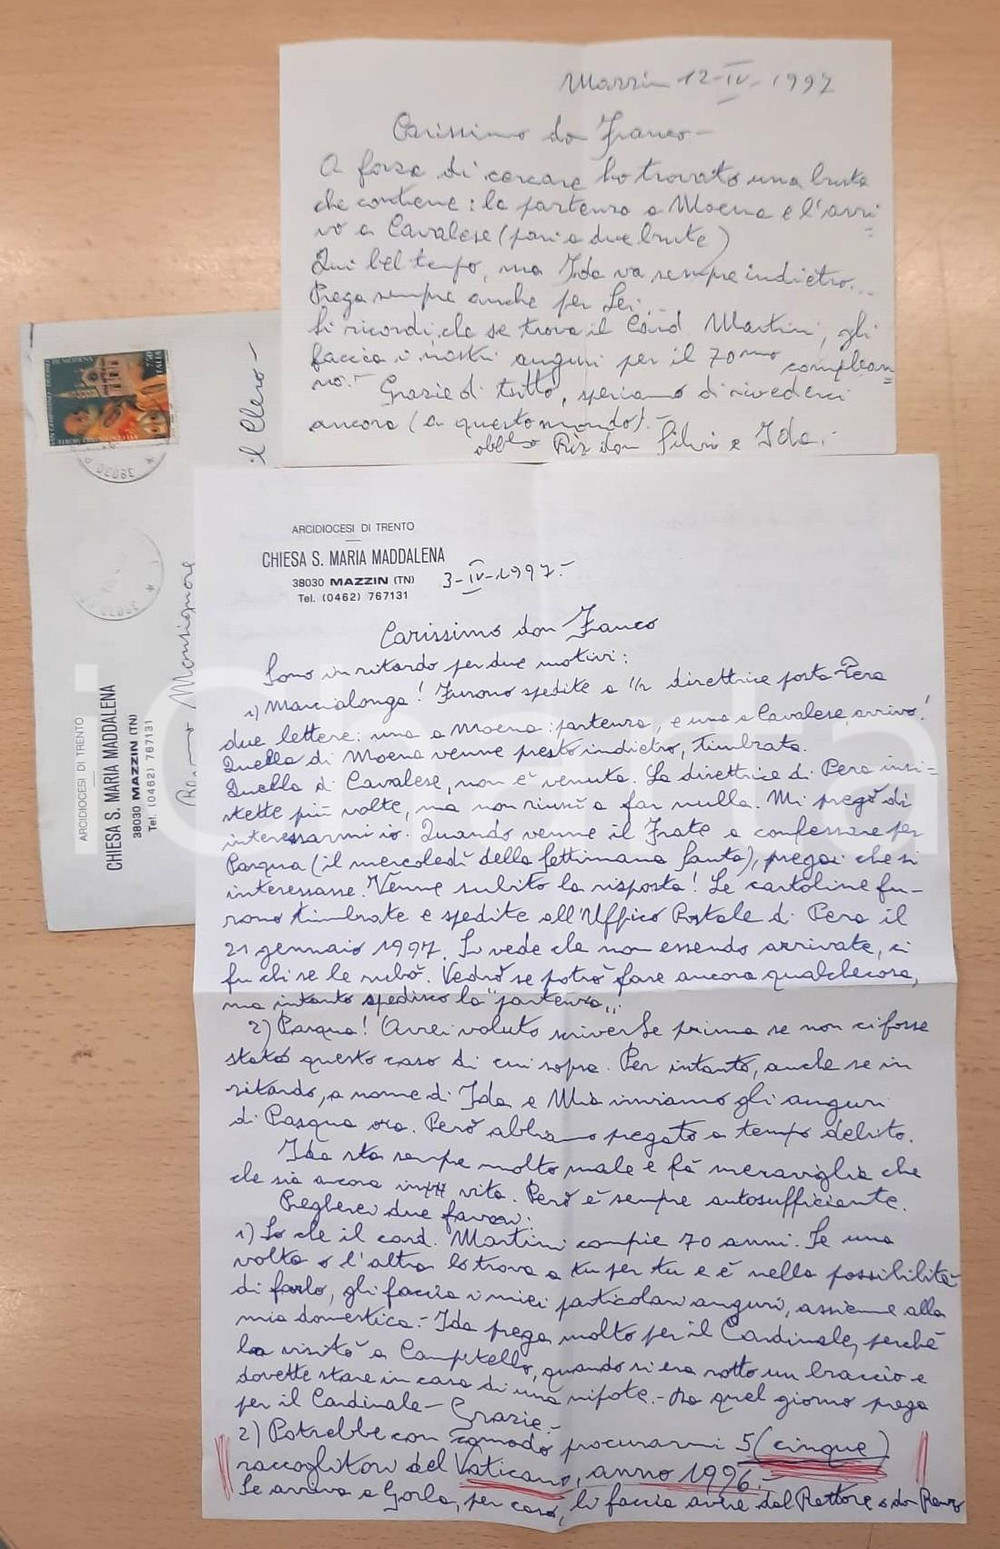 Mazzin 12-IV-1997
Carissimo don Franco-
A forza di cercare ho trovato una busta
che contiene: la partenza a Moena e l'arri=
vo a Cavalese (pari a due buste)
Qui bel tempo, ma Ida va sempre indietro...
Prega sempre anche per Lei...
Si ricordi, che se trova il Card. Martini, gli
faccia i nostri auguri per il 70mo complean=
no.- Grazie di tutto, speriamo di rivederci
ancora (a questo mondo).-
obbl.mo Riz don Silvio e Ida.-
il Clero-
Monsignore
ARCIDIOCESI DI TRENTO
CHIESA S. MARIA MADDALENA
38030 MAZZIN (TN)
Tel. (0462) 767131
ARCIDIOCESI DI TRENTO
CHIESA S. MARIA MADDALENA
38030 MAZZIN (TN)
Tel. (0462) 767131
3-IV-1997.-
Carissimo don Franco
Sono in ritardo per due motivi:
1) Marcialonga! Furono spedite a 1/2 direttrice posta Pera
due lettere: una a Moena: partenza, e una a Cavalese, arrivo!
Quella di Moena venne presto indietro, timbrata.
Quella di Cavalese, non è venuta. La direttrice di Pera insi=
stette più volte, ma non riuscì a far nulla. Mi pregò di
interessarmi io. Quando venne il Frate a confessare per
Pasqua (il mercoledì della Settimana Santa), pregai che si
interessasse. Venne subito la risposta! Le cartoline fu-
rono timbrate e spedite all'Uffico Postale di Pera il
21 gennaio 1997. Si vede che non essendo arrivate, ci
fu chi se le rubò. Vedrò se potrò fare ancora qualchecosa,
ma intanto spedisco la "partenza"!
2) Pasqua! Avrei voluto scriverLe prima se non ci fosse
stato questo caso di cui sopra. Per intanto, anche se in
ritardo, a nome di Ida e Mio inviamo gli auguri
di Pasqua ora. Però abbiamo pregato a tempo debito.
Ida sta sempre molto male e fà meraviglia che
che sia ancora in vita. Però è sempre autosufficiente.
Pregherei due favori:
1) So che il card. Martini compie 70 anni. Se una
volta o l'altra lo trova a tu per tu e è nella possibilità
di farlo, gli faccia i miei particolari auguri, assieme alla
mia domestica.- Ida prega molto per il Cardinale, perché
la visitò a Campitello, quando si era rotto un braccio e
dovette stare in casa di una nipote.- Da quel giorno prega
per il Cardinale- Grazie-
2) Potrebbe con comodo procurarmi 5 (cinque)
raccoglitori del Vaticano, anno 1996.-
Se arriva a Gorla, per caso, li faccia avere dal Rettore o don Renzo
iCharta